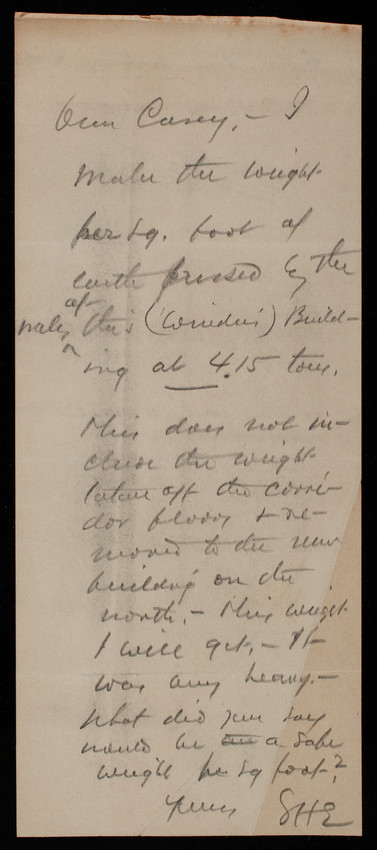 Dear Casey, - I
make the weight
per sq. foot of
earth pressed by the
walls of this (Winder's) Build-
ing at 4.15 tons.
This does not in-
clude the weight
taken off the corri-
dor floors & re-
moved to the new
building on the
north. - This weight
I will get. - It
was very heavy. -
What did you say
would be a safe
weight per sq foot?
Yours SHE